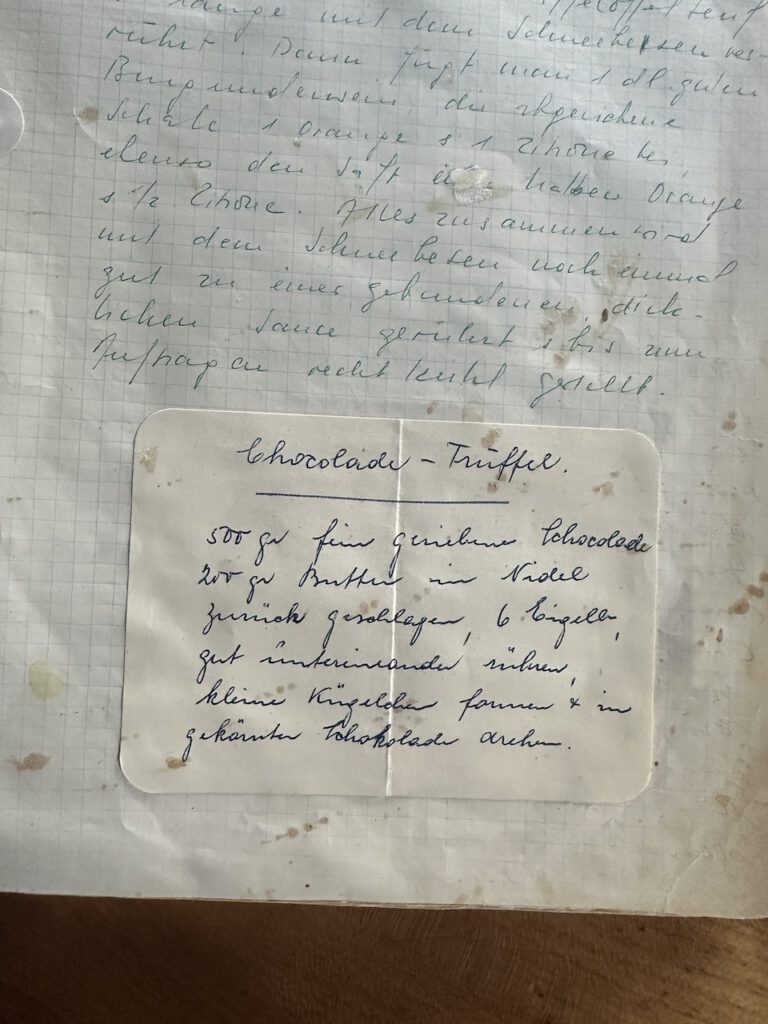 mit dem Schneebesen ver-
rührt. Dann fügt man 1 dl. guten
Burgunderwein, die abgeriebene
Schale 1 Orange & 1 Zitrone bei,
ebenso den Saft einer halben Orange
& 1/2 Zitrone. Alles zusammen wird
mit dem Schneebesen noch einmal
gut zu einer gebundenen, dick-
lichen Sauce gerührt & bis zum
Auftragen recht kühl gestellt.
Chocolade - Trüffel.
500 gr fein geriebene Chocolade
200 gr Butter in Nidel
zurück geschlagen, 6 Eigelb,
gut untereinander rühren,
kleine Kügelchen formen & in
gekörnter Schokolade drehen.